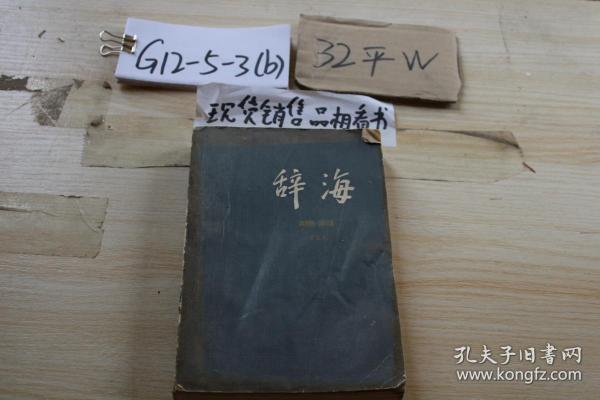 G12-5-3(b)
32平W
现货销售品相看书
辞海
孔夫子旧书网
www.kongfz.com